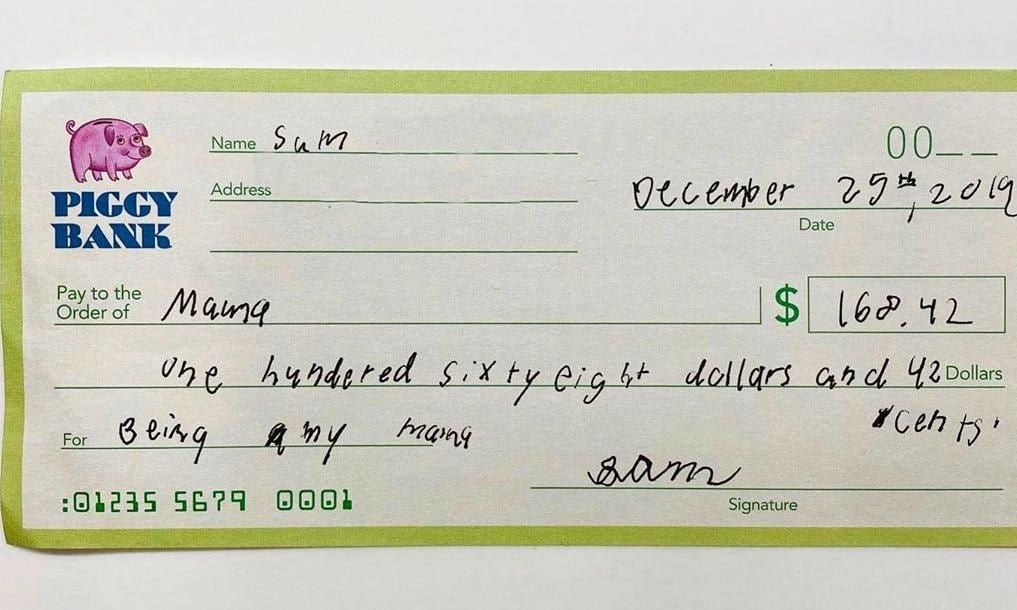 Name Sam
00__
PIGGY
BANK
Address
December 25th, 2019
Date
Pay to the
Order of Mama $ 168.42
one hundered sixty eight dollars and 42 Dollars
cents.
For Being my mama
sam
Signature
:01235 5679 0001